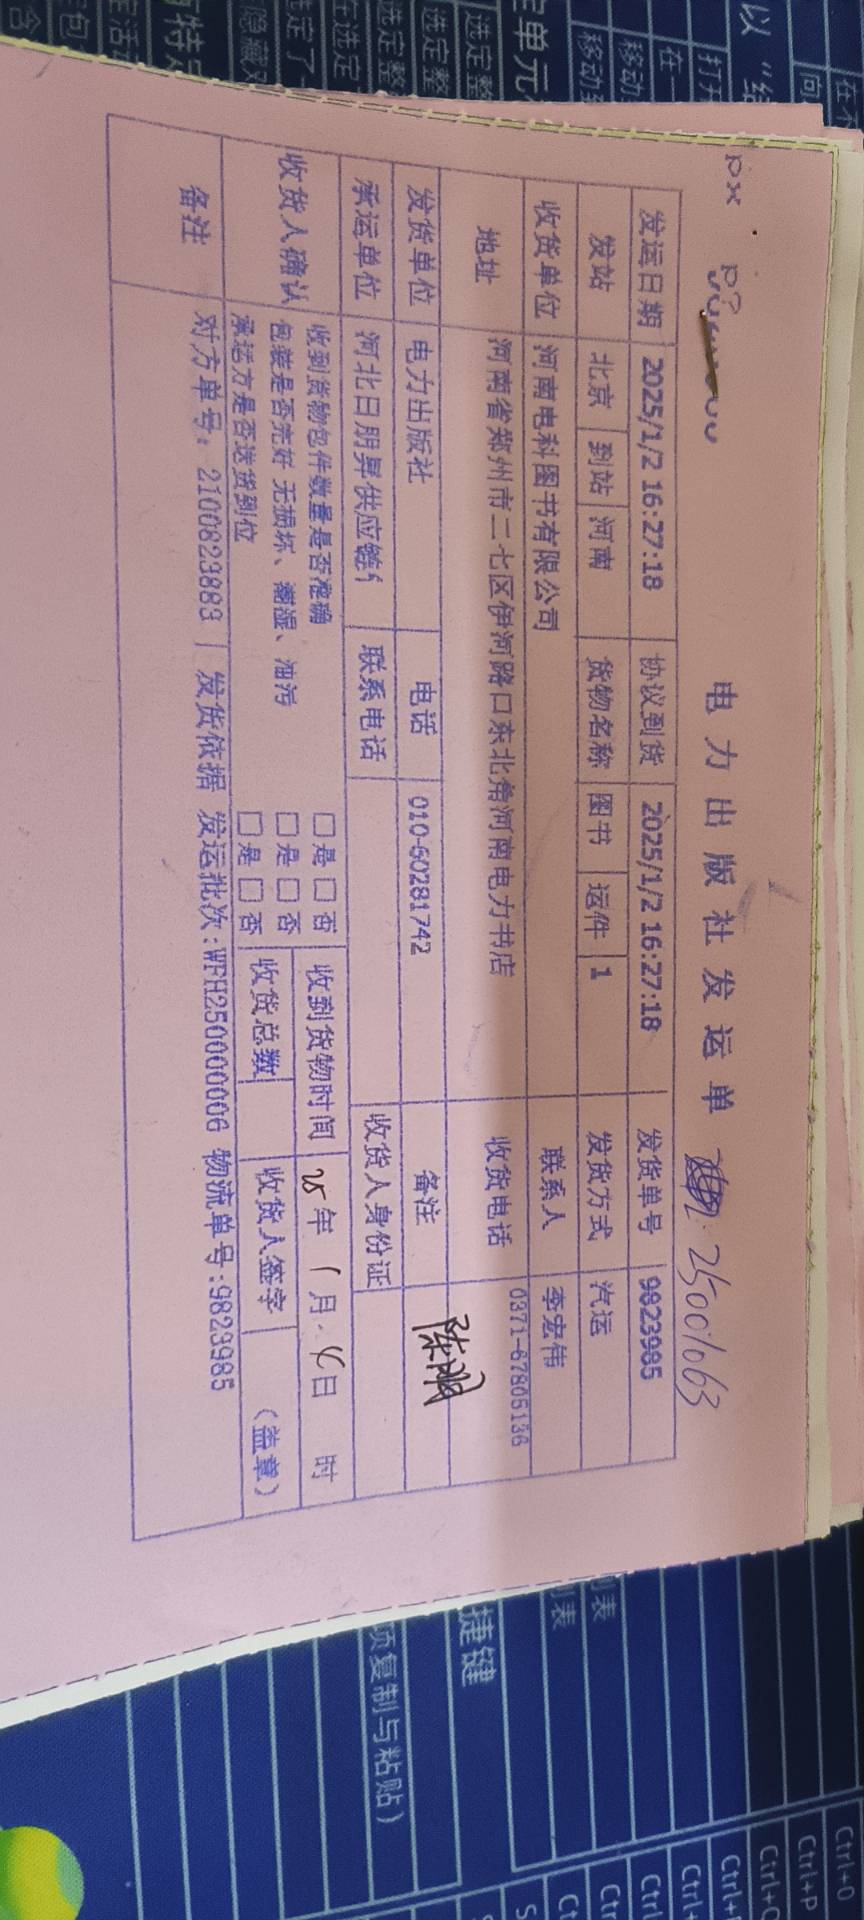 电力出版社发运单
25001063
发运日期 2025/1/2 16:27:18 协议到货 2025/1/2 16:27:18 发货单号 9823985
发站 北京 到站 河南 货物名称 图书 运件 1 发货方式 汽运
收货单位 河南电科图书有限公司 联系人 李宏伟
地址 河南省郑州市二七区伊河路口东北角河南电力书店 收货电话 0371-67805136
发货单位 电力出版社 电话 010-60281742 备注
承运单位 河北日朋昇供应链 联系电话 收货人身份证
收货人确认 收到货物包件数量是否准确 □是□否 收到货物时间 25年1月4日 时
包装是否完好 无损坏、潮湿、油污 □是□否 收货总数 收货人签字 (盖章)
承运方是否送货到位 □是□否
备注 对方单号: 2100823883 | 发货依据 发运批次:WFH250000006 物流单号:9823985
以“结
打开
在一
移动
移动到
定单元
选定整
选定整
选定整
在选定
选定了一
隐藏
捷键
列表
列表
项复制与粘贴)
Ctrl+O
Ctrl+P